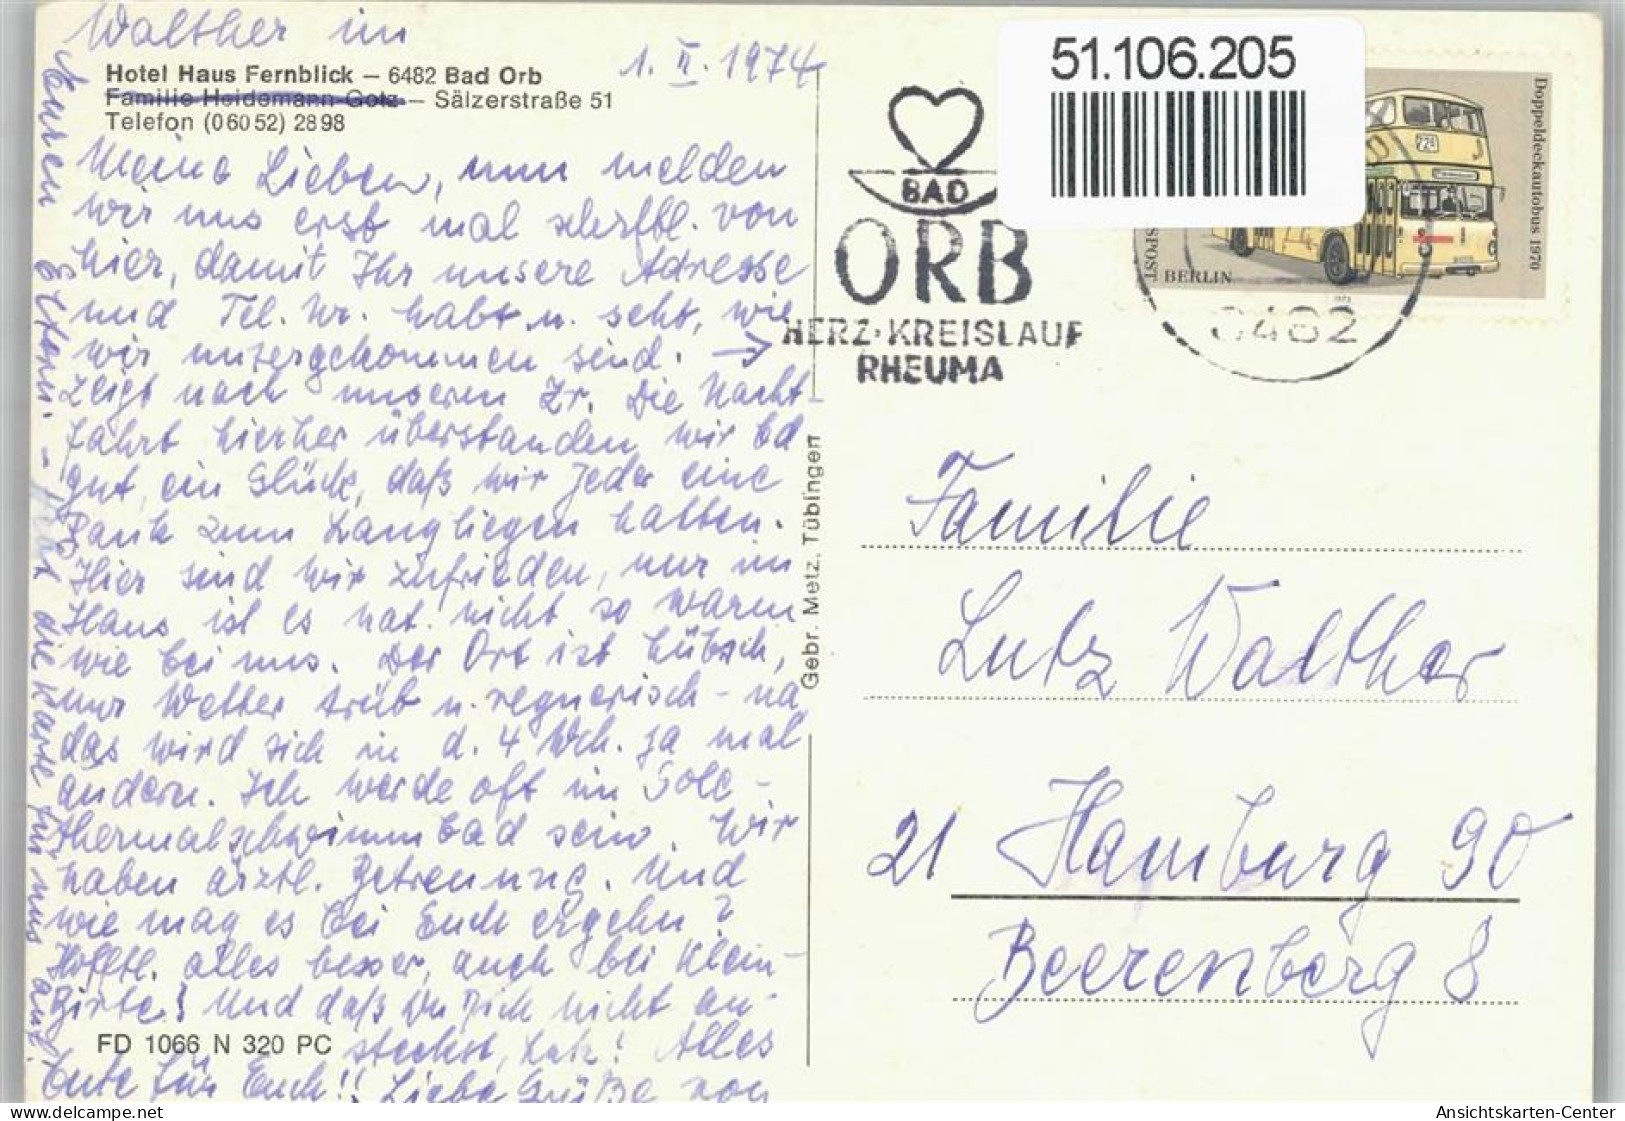 Walther im
1. II. 1974
Hotel Haus Fernblick – 6482 Bad Orb
Familie Heidemann-Gotz – Sälzerstraße 51
Telefon (06052) 2898
Meine Lieben, nun melden
wir uns erst mal schrftl. von
hier, damit Ihr unsere Adresse
und Tel. Nr. habt u. seht, wie
wir untergekommen sind. →
zeigt nach unserem Zr. Die Nacht-
fahrt hierher überstanden wir
gut, ein Glück, daß wir jeder eine
Bank zum Langliegen hatten.
Hier sind wir zufrieden, nur im
Haus ist es nat. nicht so warm
wie bei uns. Der Ort ist hübsch,
nur Wetter trüb u. regnerisch – na
das wird sich in d. 4 Wch. ja mal
ändern. Ich werde oft im Sole-
thermalschwimmbad sein. Wir
haben ärztl. Betreuung. Und
wie mag es bei Euch ergehn?
Hofftl. alles besser, auch bei Klein-
Birte! Und daß Du Dich nicht an-
steckst, Lutz! Alles
Gute für Euch!! Liebe Grüße von
Euren Eltern. – die Karte für uns auf.
FD 1066 N 320 PC
Gebr. Metz, Tübingen
BAD
ORB
HERZ·KREISLAUF
RHEUMA
51.106.205
Doppeldeckautobus 1970
SPOST
BERLIN
1973
728
6482
Familie
Lutz Walther
21 Hamburg 90
Beerenberg 8
oldthing.com
Ansichtskarten-Center